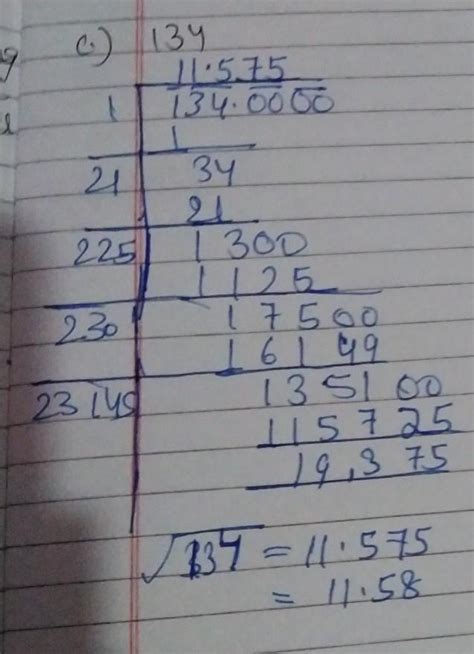 c.) 134
11.575
1 134.0000
1
21 34
21
225 1300
1125
230 17500
16149
23145 135100
115725
19,375
√134 = 11.575
= 11.58